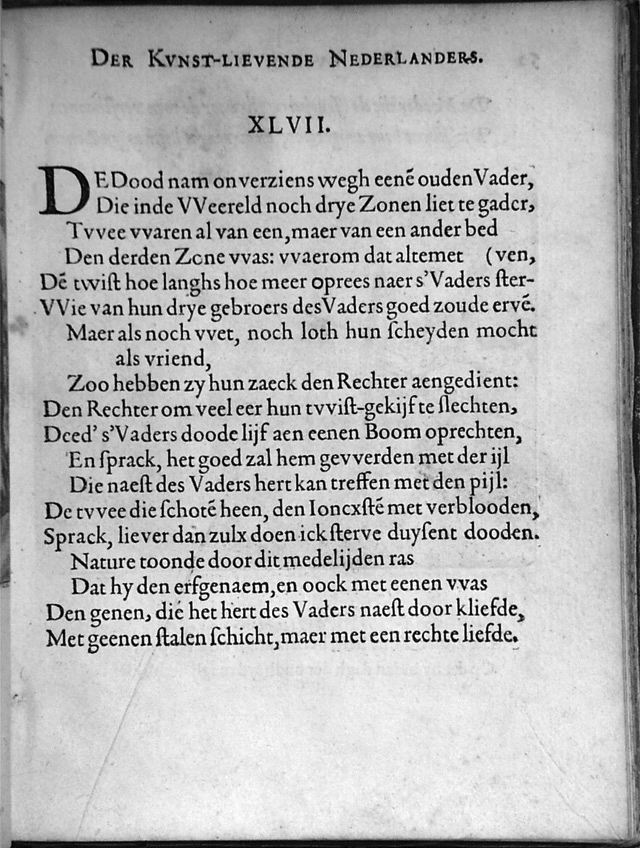 DER KVNST-LIEVENDE NEDERLANDERS.
XLVII.
DE Dood nam onverziens wegh eenē ouden Vader,
Die inde VVeereld noch drye Zonen liet te gader,
Tvvee vvaren al van een, maer van een ander bed
Den derden Zone vvas: vvaerom dat altemet (ven,
Dē twiſt hoe langhs hoe meer oprees naer s'Vaders ſter-
VVie van hun drye gebroers des Vaders goed zoude ervē.
Maer als noch vvet, noch loth hun ſcheyden mocht
als vriend,
Zoo hebben zy hun zaeck den Rechter aengedient:
Den Rechter om veel eer hun tvviſt-gekijf te ſlechten,
Deed' s'Vaders doode lijf aen eenen Boom oprechten,
En ſprack, het goed zal hem gevverden met der ijl
Die naeſt des Vaders hert kan treffen met den pijl:
De tvvee die ſchotē heen, den Ioncxſtē met verblooden,
Sprack, liever dan zulx doen ick ſterve duyſent dooden.
Nature toonde door dit medelijden ras
Dat hy den erfgenaem, en oock met eenen vvas
Den genen, die het hert des Vaders naeſt door kliefde,
Met geenen ſtalen ſchicht, maer met een rechte liefde.